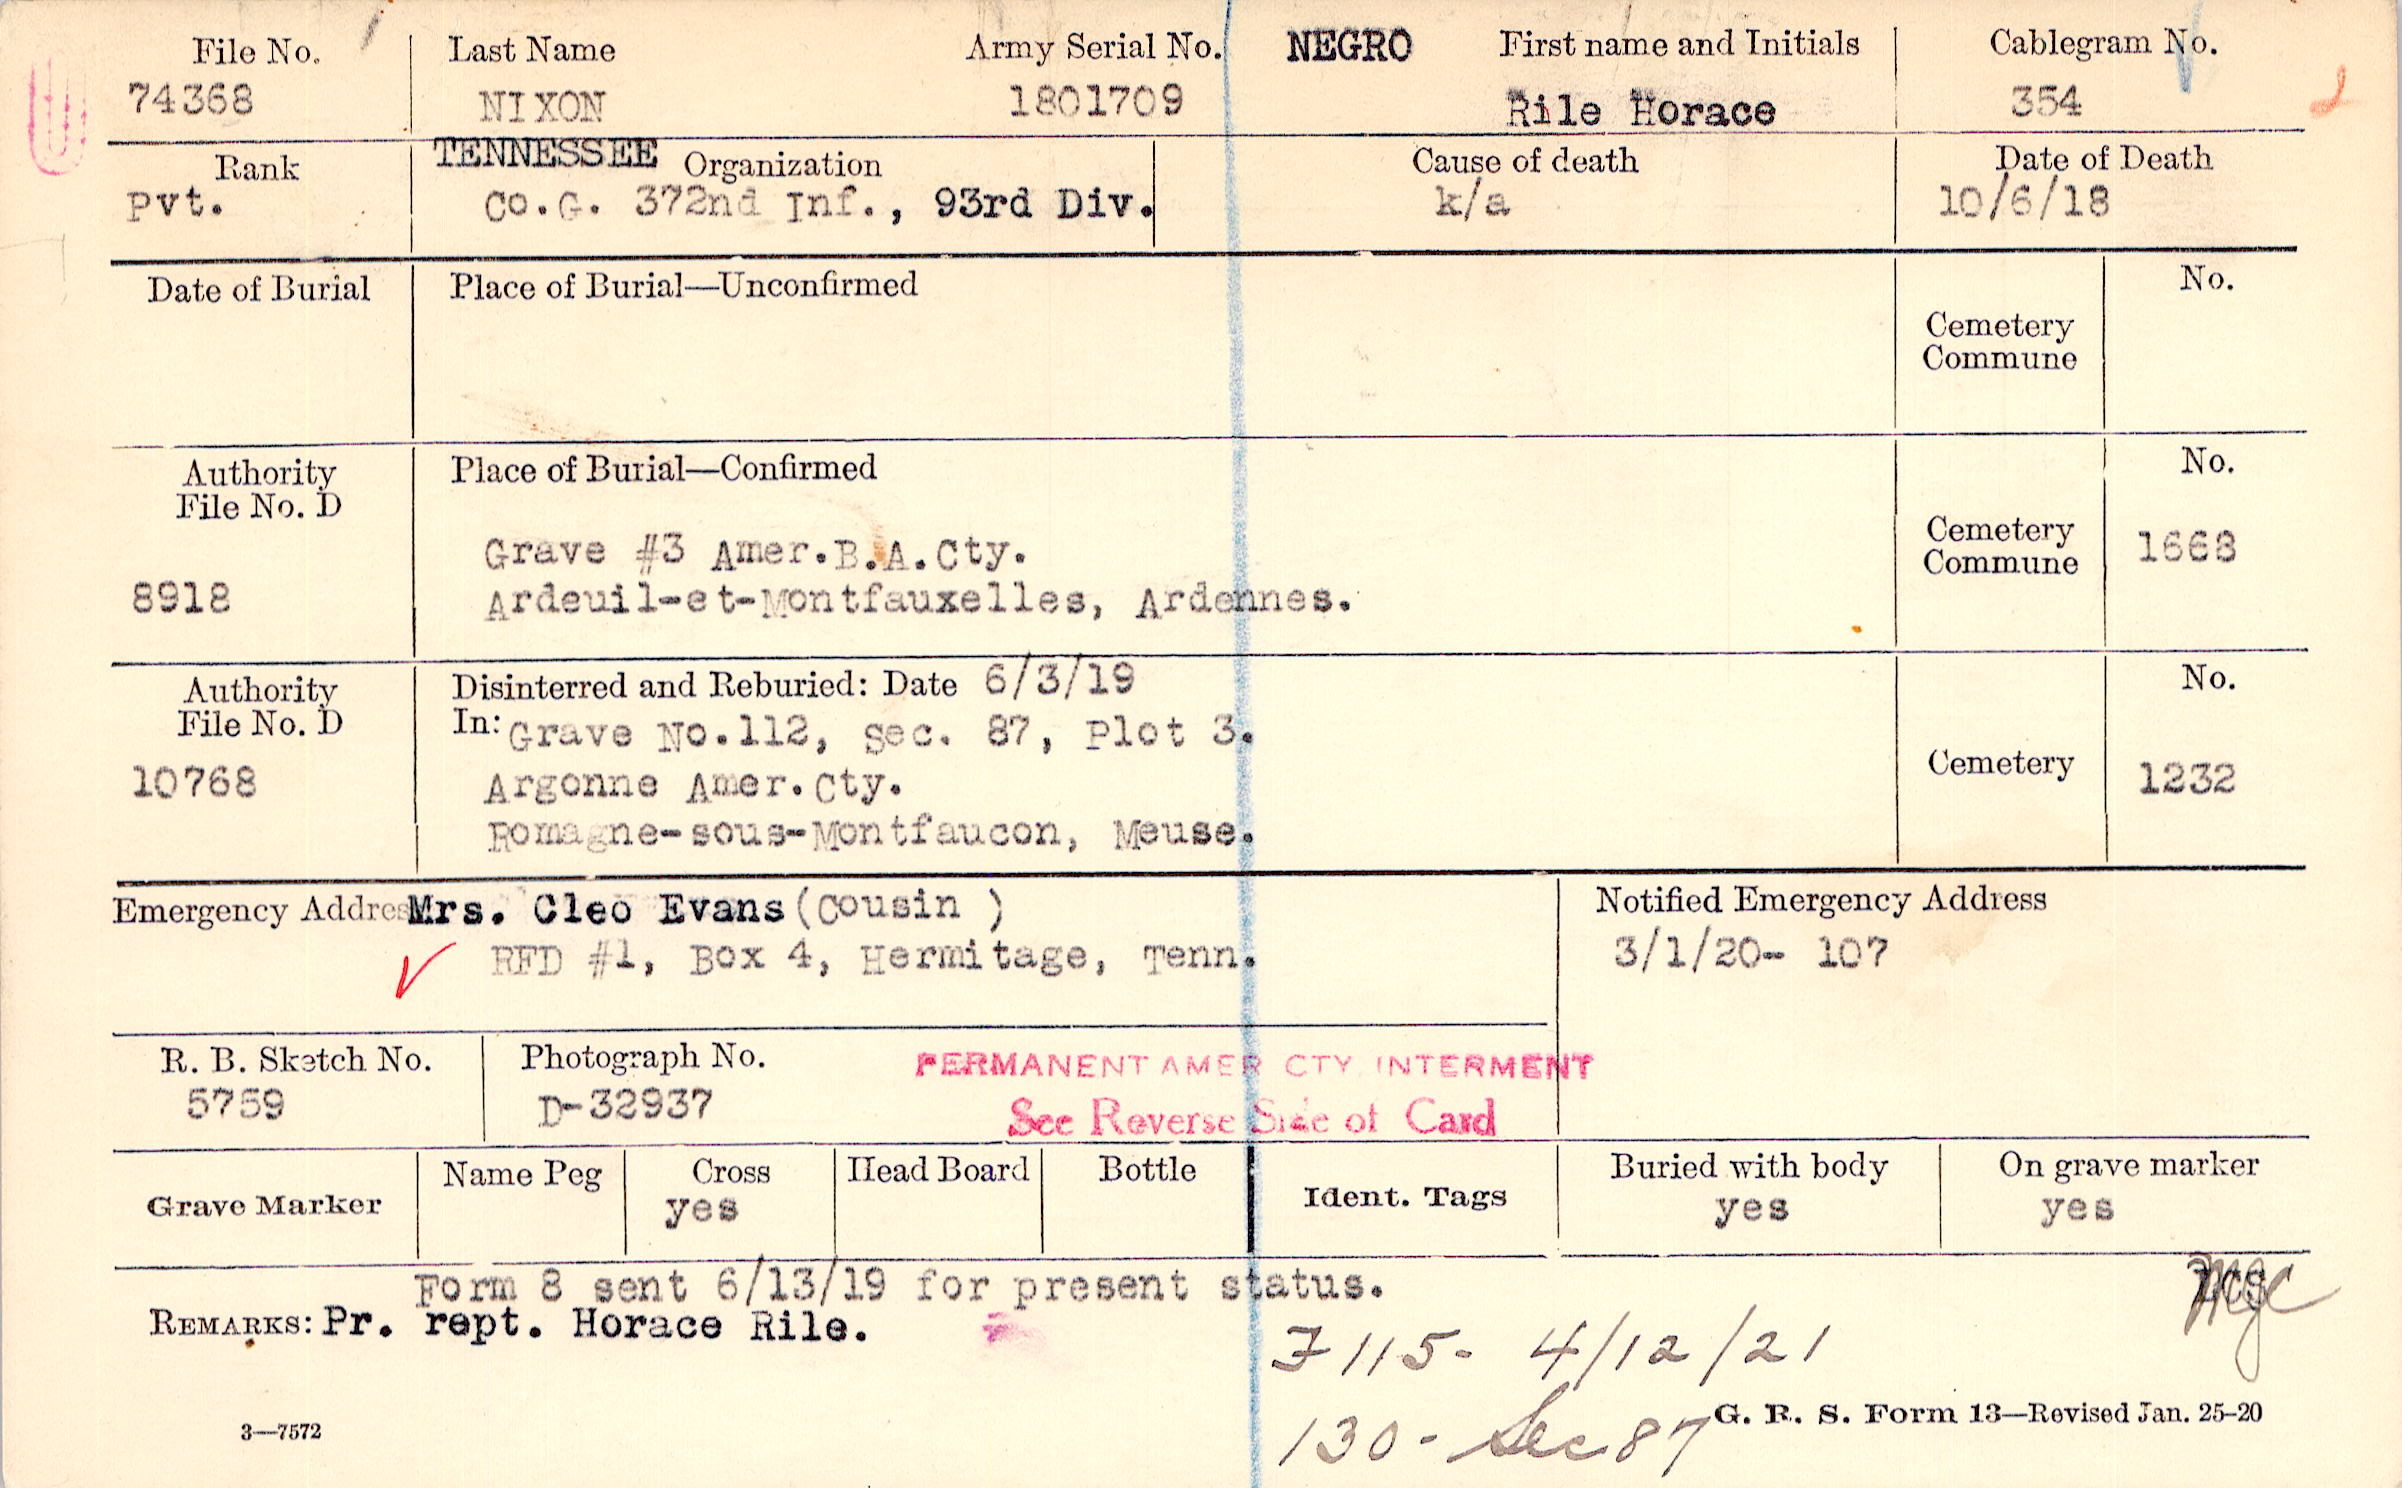 File No. Last Name Army Serial No. NEGRO First name and Initials Cablegram No.
74368 NIXON 1801709 Rile Horace 354
Rank TENNESSEE Organization Cause of death Date of Death
Pvt. Co.G. 372nd Inf., 93rd Div. k/a 10/6/18
Date of Burial Place of Burial—Unconfirmed No.
Cemetery
Commune
Authority Place of Burial—Confirmed No.
File No. D
Grave #3 Amer.B.A.Cty. Cemetery 1668
8918 Ardeuil-et-Montfauxelles, Ardennes. Commune
Authority Disinterred and Reburied: Date 6/3/19 No.
File No. D In: Grave No.112, Sec. 87, Plot 3.
10768 Argonne Amer.Cty. Cemetery 1232
Romagne-sous-Montfaucon, Meuse.
Emergency Address Mrs. Cleo Evans (Cousin ) Notified Emergency Address
RFD #1, Box 4, Hermitage, Tenn. 3/1/20- 107
R. B. Sketch No. Photograph No. PERMANENT AMER CTY. INTERMENT
5759 D-32937 See Reverse Side of Card
Grave Marker Name Peg Cross Head Board Bottle Ident. Tags Buried with body On grave marker
yes yes yes
Form 8 sent 6/13/19 for present status.
REMARKS: Pr. rept. Horace Rile.
115- 4/12/21
130- Sec 87
3—7572 G. R. S. Form 13—Revised Jan. 25-20